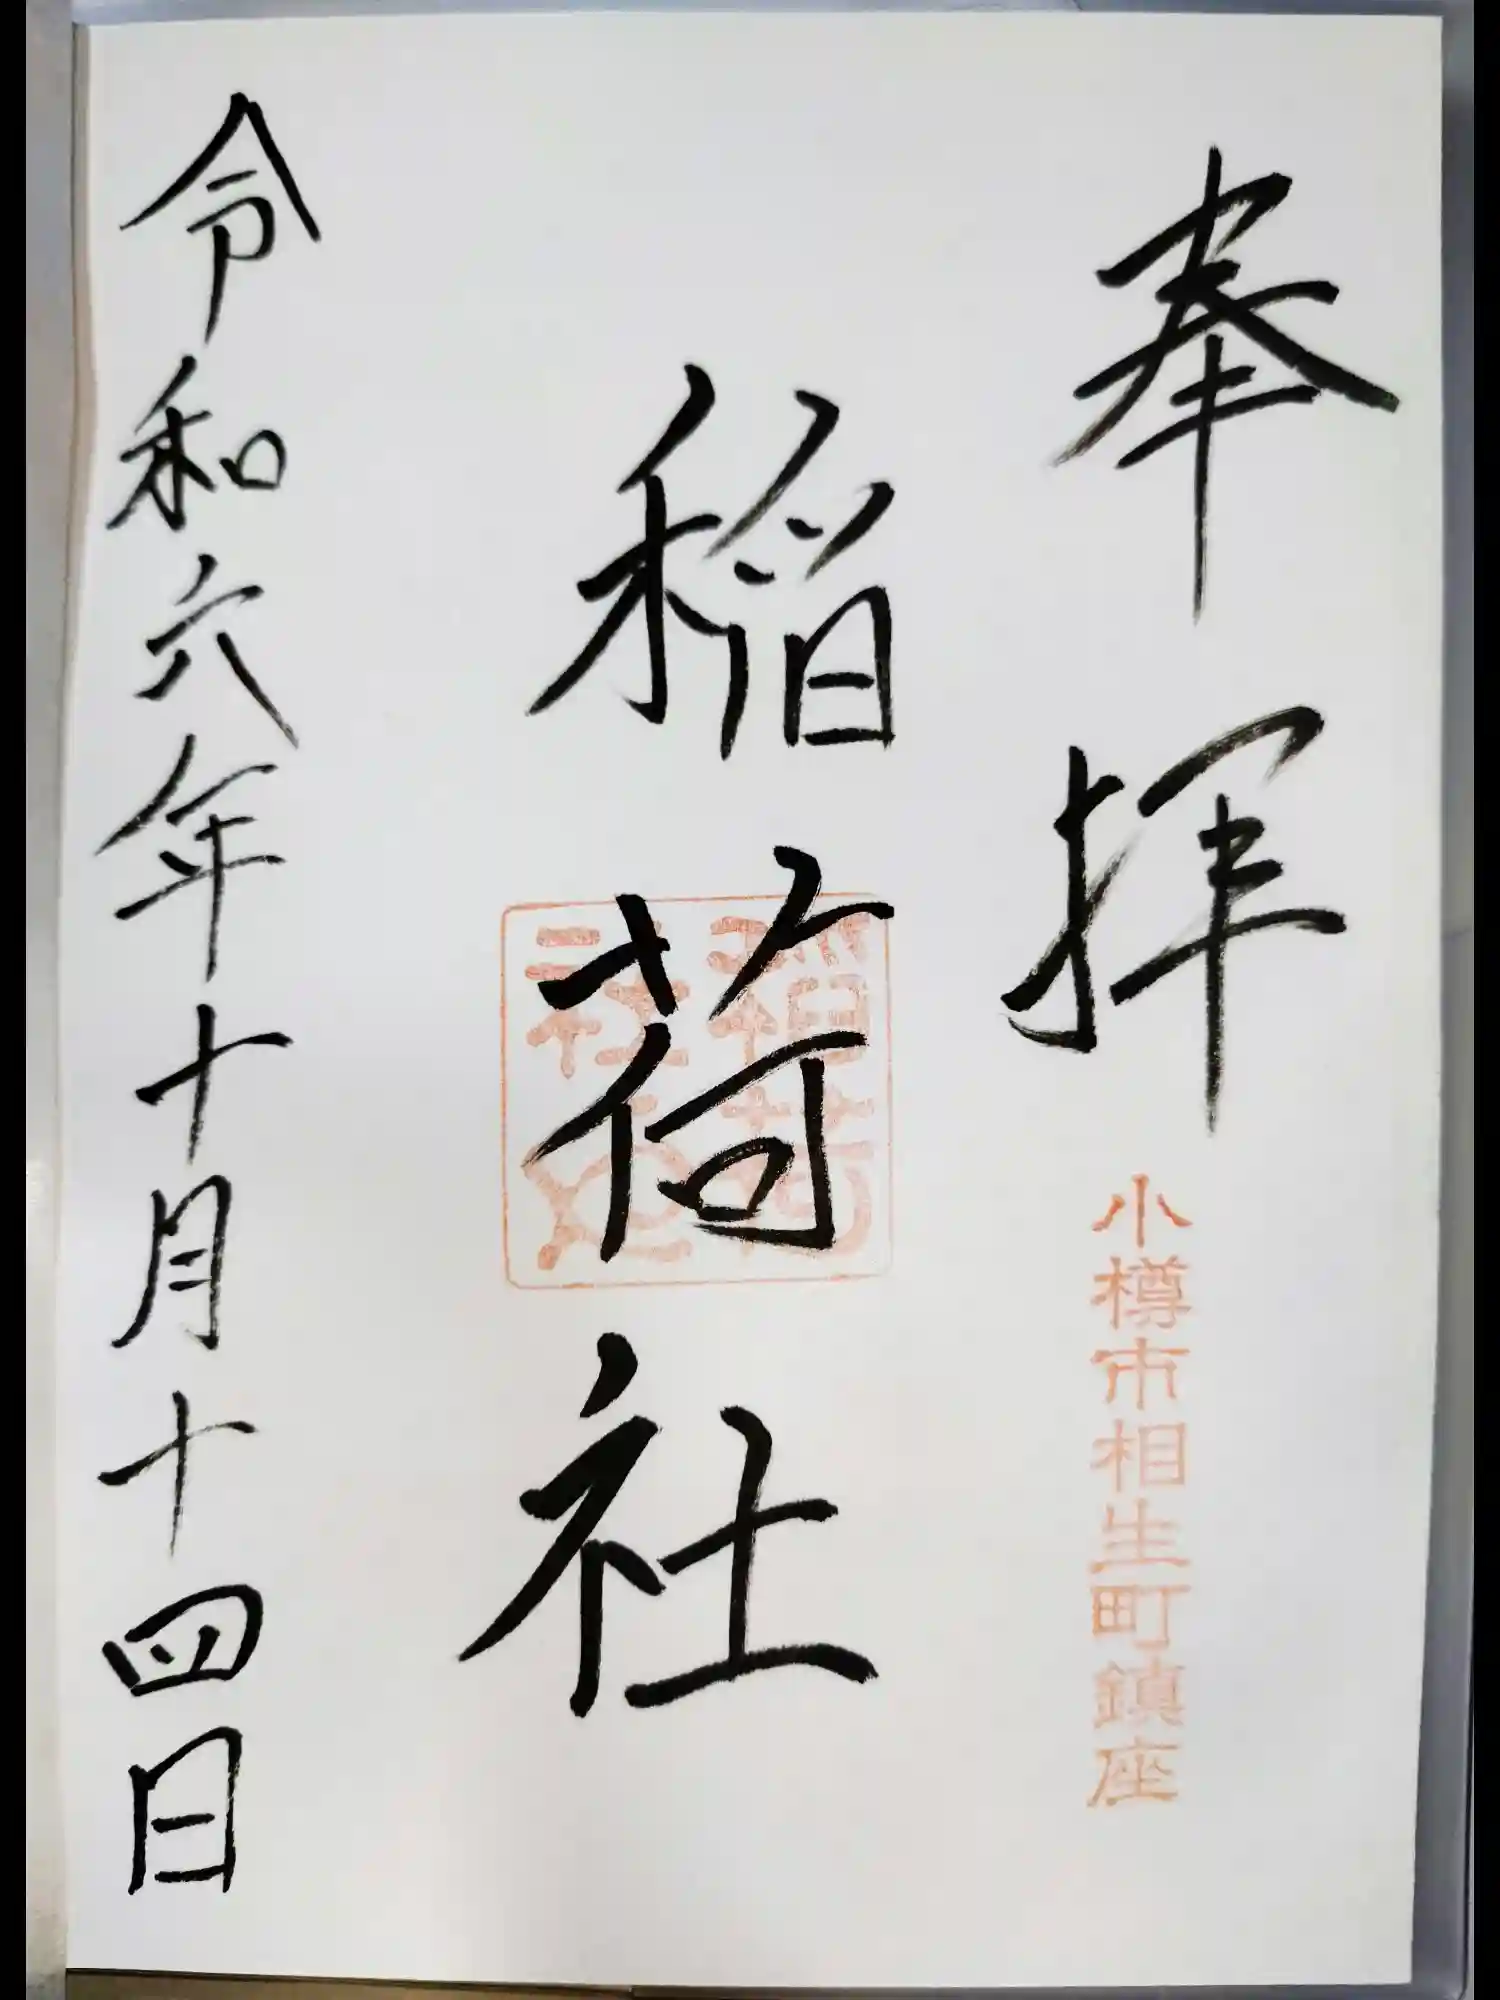 奉拝
小樽市相生町鎮座
稲荷社
令和六年十月十四日